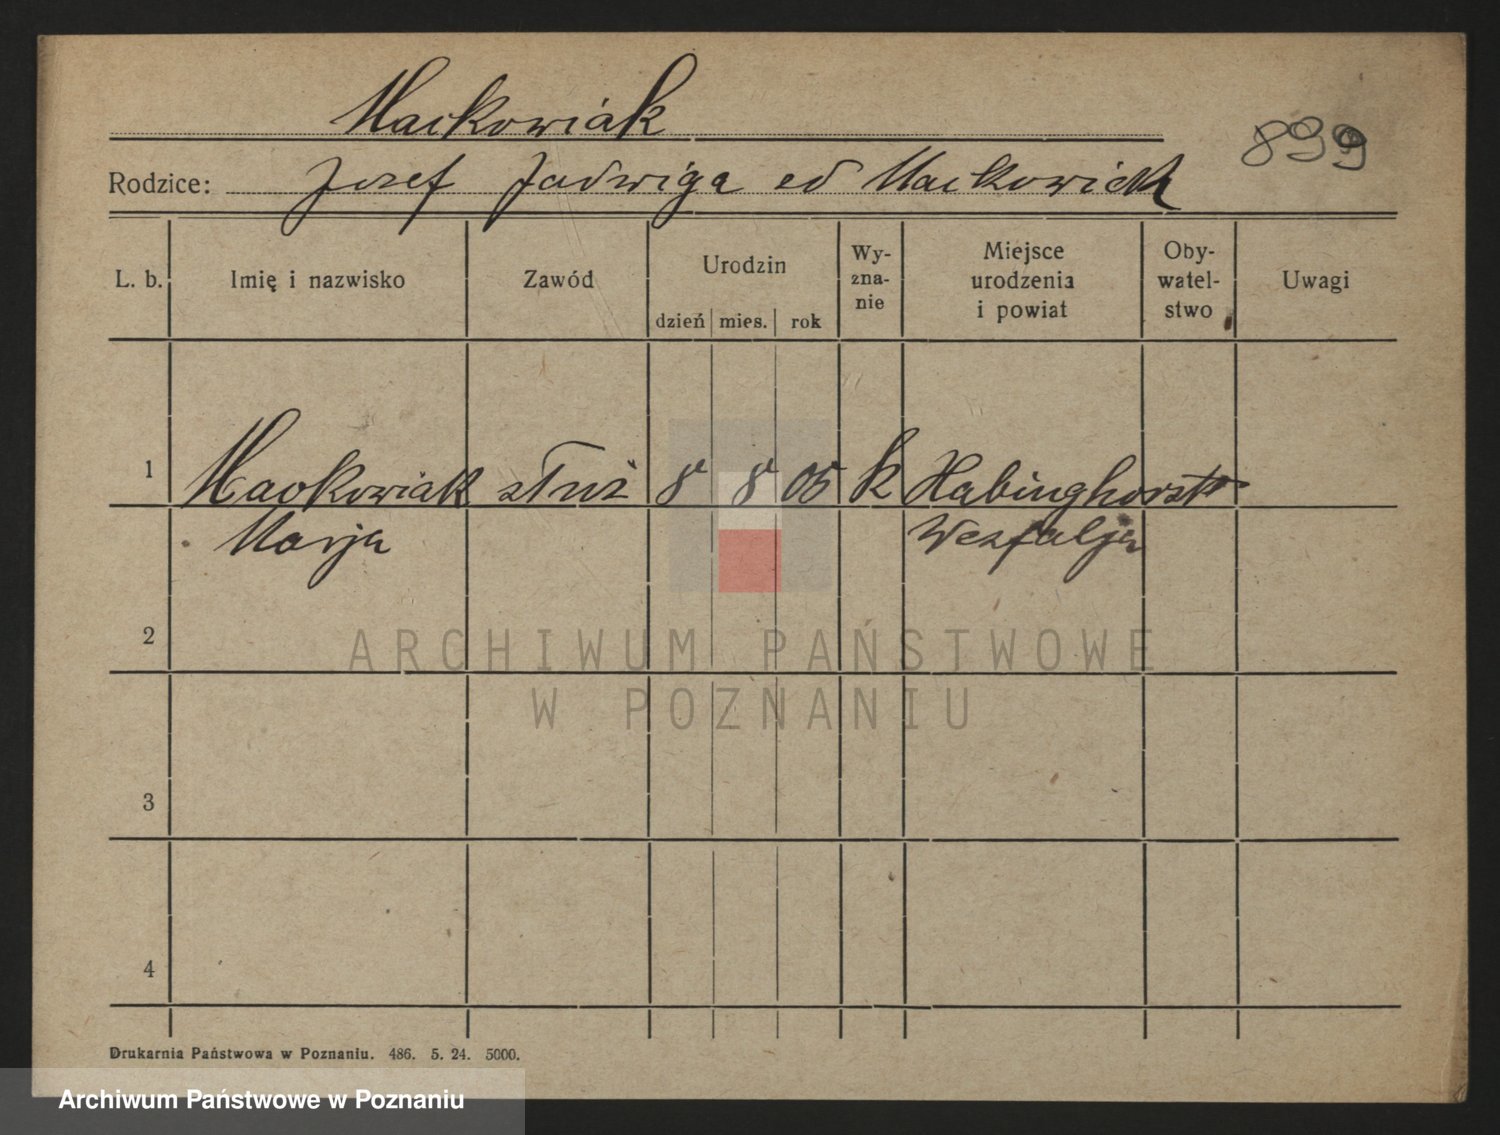 Mackowiak
899
Rodzice: Josef Jadwiga ed Mackowiak
L. b. Imię i nazwisko Zawód Urodzin dzień mies. rok Wy-zna-nie Miejsce urodzenia i powiat Oby-watel-stwo Uwagi
1 Mackowiak służ 8 8 05 k Habinghorst
Marja Wesfalja
2
3
4
ARCHIWUM PAŃSTWOWE
W POZNANIU
Drukarnia Państwowa w Poznaniu. 486. 5. 24. 5000.
Archiwum Państwowe w Poznaniu